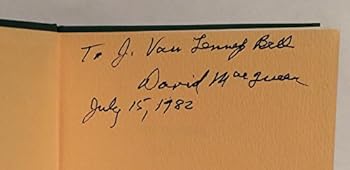 To J. Van Lennep Bell
David Macqueen
July 15, 1982